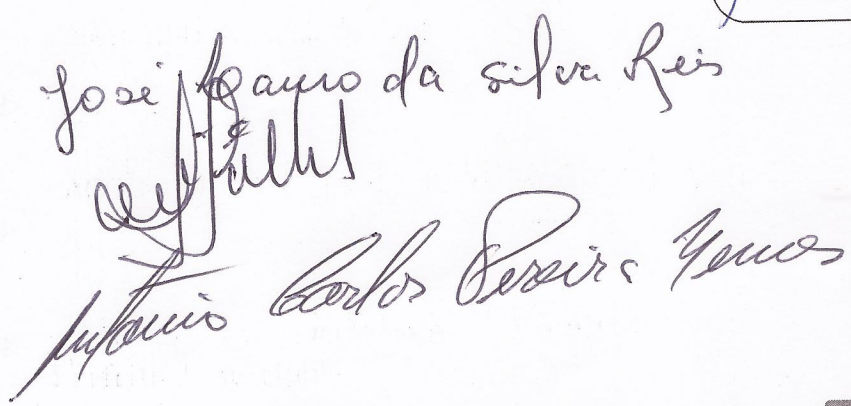 José Mauro da silva Reis
Antonio Carlos Pereira Gomes